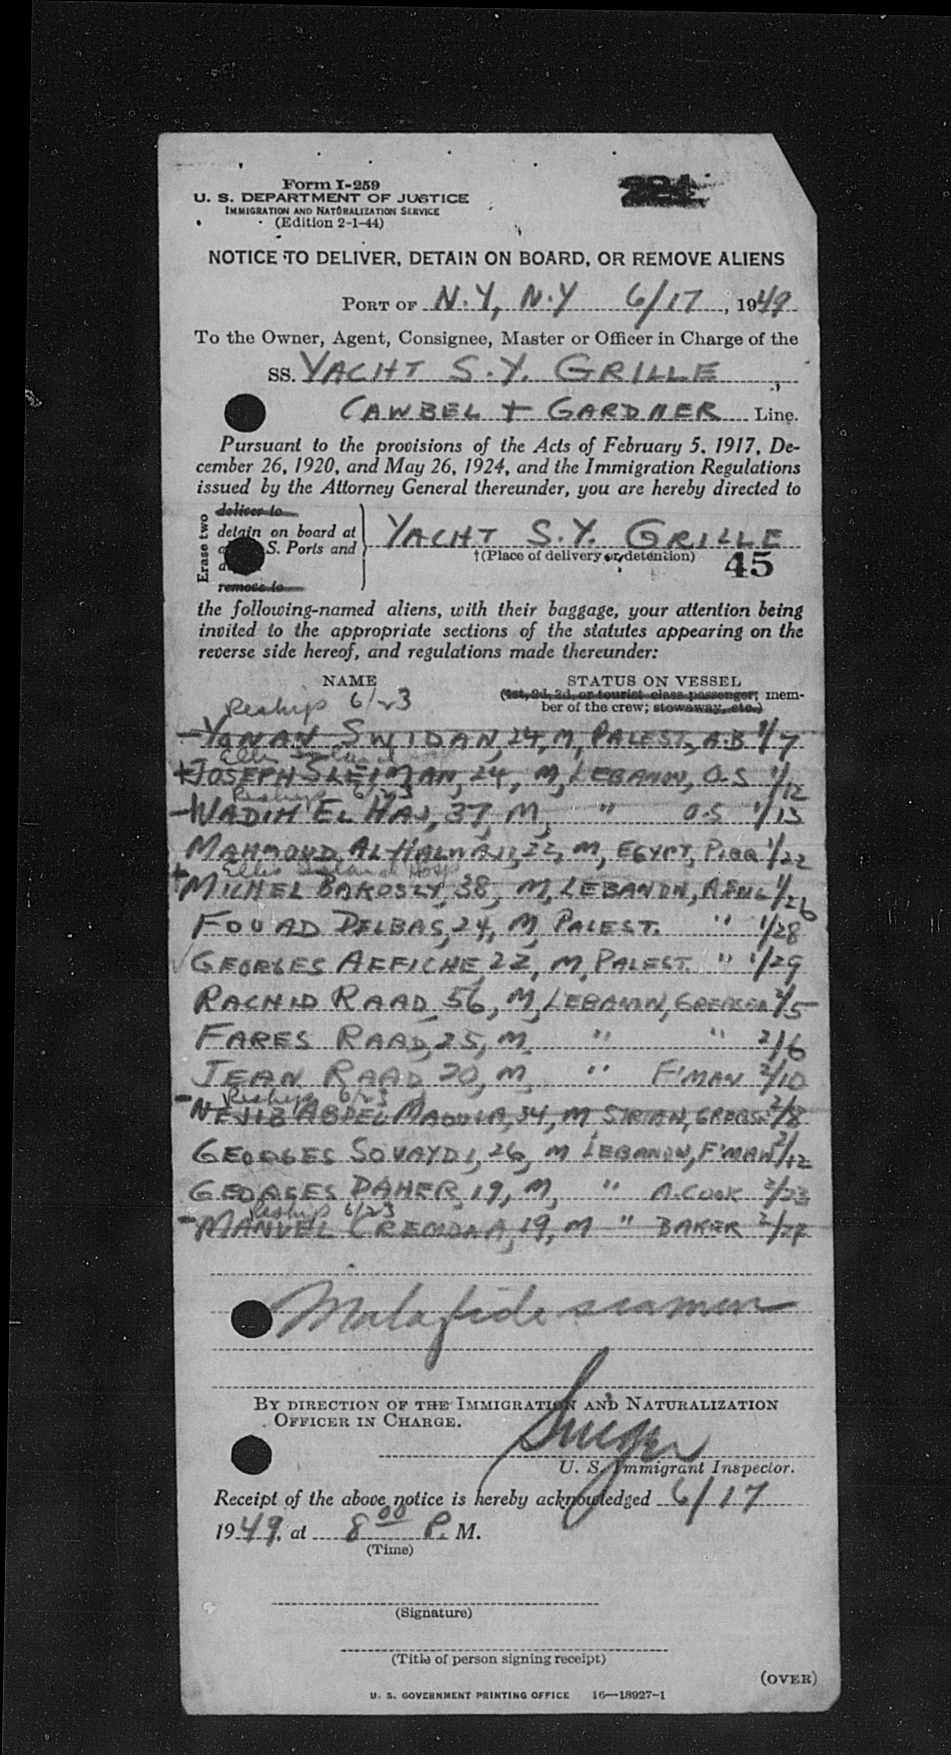 Form I-259
U. S. DEPARTMENT OF JUSTICE
IMMIGRATION AND NATURALIZATION SERVICE
(Edition 2-1-44)
NOTICE TO DELIVER, DETAIN ON BOARD, OR REMOVE ALIENS
PORT OF N.Y, N.Y 6/17, 1949
To the Owner, Agent, Consignee, Master or Officer in Charge of the
SS. YACHT S.Y. GRILLE
CAWBEL + GARDNER Line.
Pursuant to the provisions of the Acts of February 5, 1917, De-
cember 26, 1920, and May 26, 1924, and the Immigration Regulations
issued by the Attorney General thereunder, you are hereby directed to
Erase two
deliver to
detain on board at
S. Ports and
remove to
YACHT S.Y. GRILLE
(Place of delivery or detention)
45
the following-named aliens, with their baggage, your attention being
invited to the appropriate sections of the statutes appearing on the
reverse side hereof, and regulations made thereunder:
NAME STATUS ON VESSEL
(1st, 2d, 3d, or tourist class passenger; mem-
ber of the crew; stowaway, etc.)
Reship 6/23
- YONAN SWIDAN, 24, M, PALEST, A.B 1/7
Ellis Island
+ JOSEPH SLEIMAN, 24, M, LEBANON, O.S 1/12
Reship 6/23
- WADIH EL HAJ, 37, M, " O.S 1/13
MAHMOUD AL HALWAJI, 22, M, EGYPT, 1/22
Ellis Island Hosp
+ MICHEL BAKOSLY, 38, M, LEBANON, 1/26
FOUAD DELBAS, 24, M, PALEST. " 1/28
GEORGES AFFICHE, 22, M, PALEST. " 1/29
RACHID RAAD, 56, M, LEBANON, GREASER 2/5
FARES RAAD, 25, M, " " 2/6
JEAN RAAD, 20, M, " F'MAN 2/10
Reship 6/23
- NEJIB ABDEL 34, M SYRIAN, GREASR 2/8
GEORGES SOUAYDI, 26, M LEBANON, F'MAN 2/12
GEORGES DAHER, 19, M, " A.COOK 2/23
Reship 6/23
- MANUEL CREMONA, 19, M " BAKER 2/27
Malafide seamen
BY DIRECTION OF THE IMMIGRATION AND NATURALIZATION
OFFICER IN CHARGE.
U. S. Immigrant Inspector.
Receipt of the above notice is hereby acknowledged 6/17
1949, at 8 00 P. M.
(Time)
(Signature)
(Title of person signing receipt)
(OVER)
U. S. GOVERNMENT PRINTING OFFICE 16—18927-1